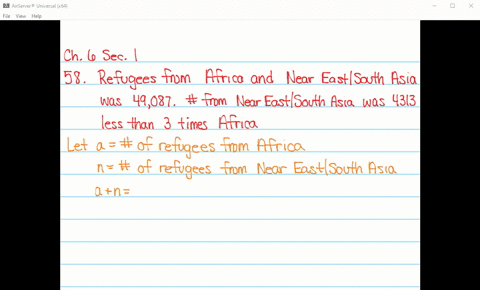 AirServer® Universal (x64)
File View Help
Ch. 6 Sec. 1
58. Refugees from Africa and Near East/South Asia
was 49,087. # from Near East/South Asia was 4313
less than 3 times Africa
Let a = # of refugees from Africa
n = # of refugees from Near East/South Asia
a+n=